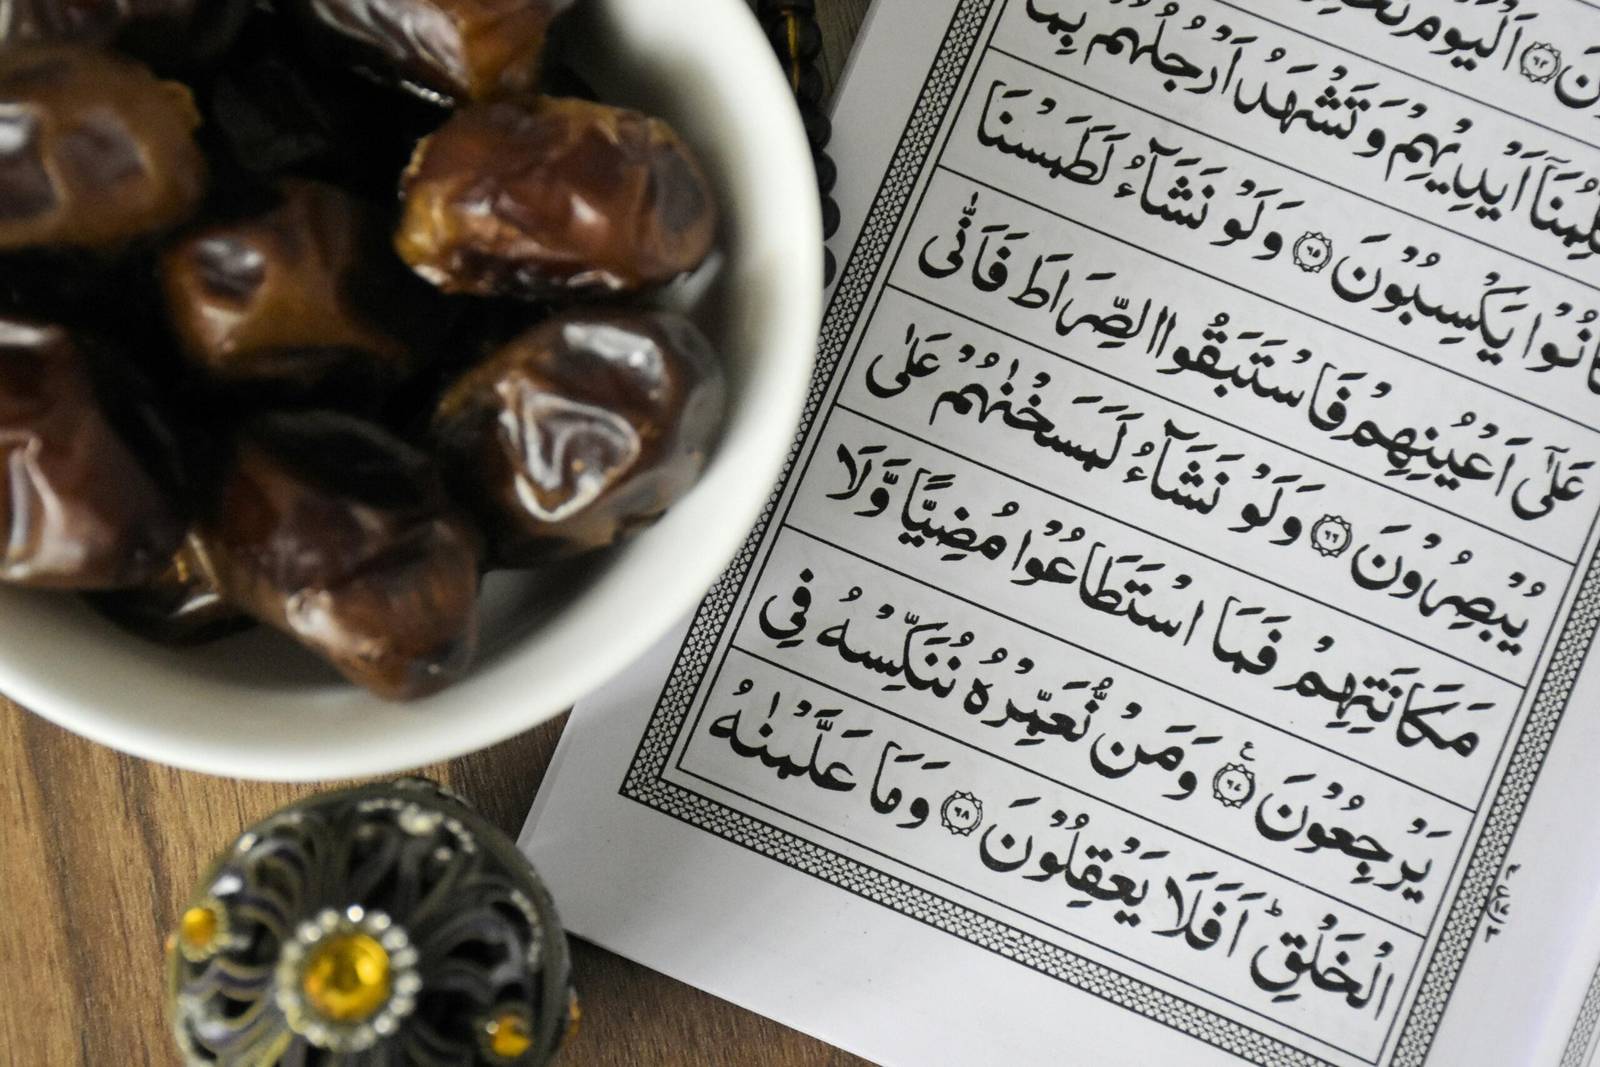 ۝٦٤ اَلْيَوْمَ
اَيْدِيْهِمْ وَتَشْهَدُ اَرْجُلُهُمْ بِمَا
يَكْسِبُوْنَ ۝٦٥ وَلَوْ نَشَآءُ لَطَمَسْنَا
عَلٰٓى اَعْيُنِهِمْ فَاسْتَبَقُوا الصِّرَاطَ فَاَنّٰى
يُبْصِرُوْنَ ۝٦٦ وَلَوْ نَشَآءُ لَمَسَخْنٰهُمْ عَلٰى
مَكَانَتِهِمْ فَمَا اسْتَطَاعُوْا مُضِيًّا وَّلَا
يَرْجِعُوْنَ ۝٦٧ ع وَمَنْ نُّعَمِّرْهُ نُنَكِّسْهُ فِى
الْخَلْقِ ؕ اَفَلَا يَعْقِلُوْنَ ۝٦٨ وَمَا عَلَّمْنٰهُ